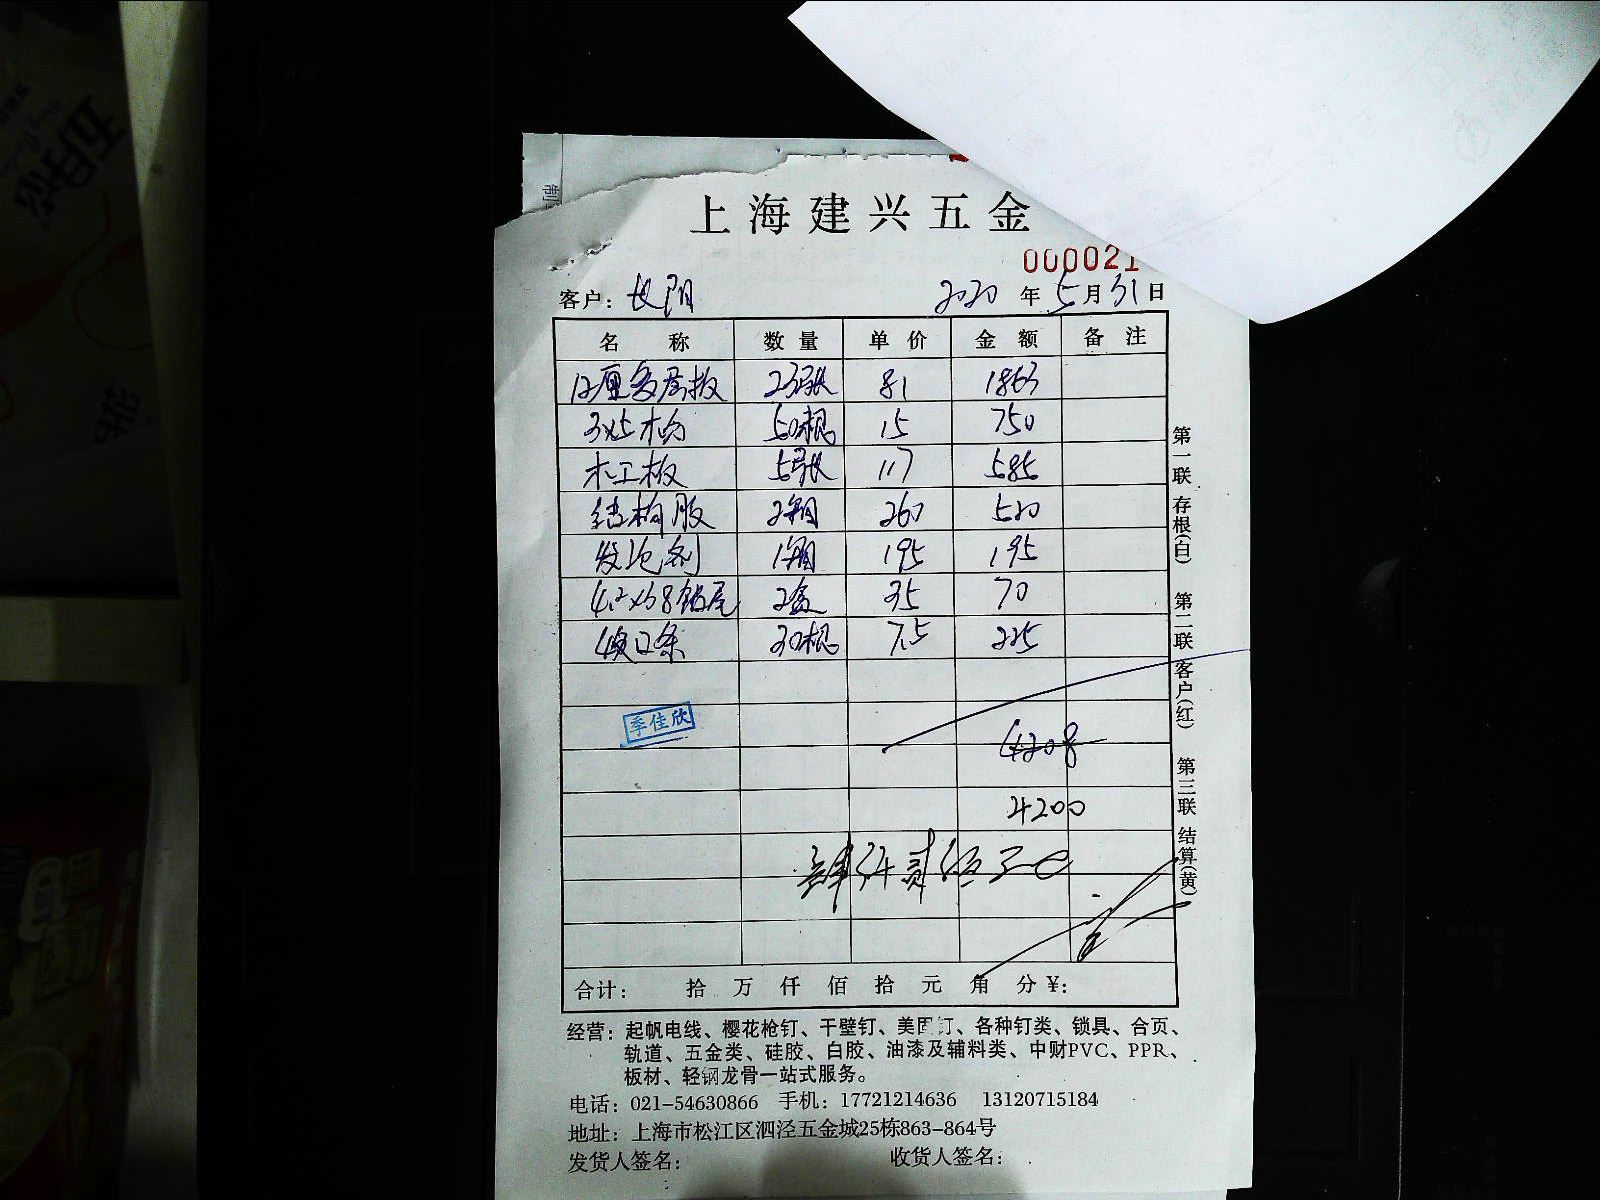 上海建兴五金
000021
客户: 长阴 2020 年 5 月 31 日
名 称 数 量 单 价 金 额 备 注
12厘多层板 23张 81 1863
3x5木方 50根 15 750
木工板 5张 117 585
结构胶 2箱 260 520
发泡剂 1箱 195 195
4.2x38钻尾 2盒 35 70
收口条 30根 7.5 225
季佳欣
4208
4200
肆仟贰佰元
合计: 拾 万 仟 佰 拾 元 角 分 ¥:
第一联 存根(白) 第二联 客户(红) 第三联 结算(黄)
经营: 起帆电线、樱花枪钉、干壁钉、美固钉、各种钉类、锁具、合页、
轨道、五金类、硅胶、白胶、油漆及辅料类、中财PVC、PPR、
板材、轻钢龙骨一站式服务。
电话: 021-54630866 手机: 17721214636 13120715184
地址: 上海市松江区泗泾五金城25栋863-864号
发货人签名: 收货人签名: